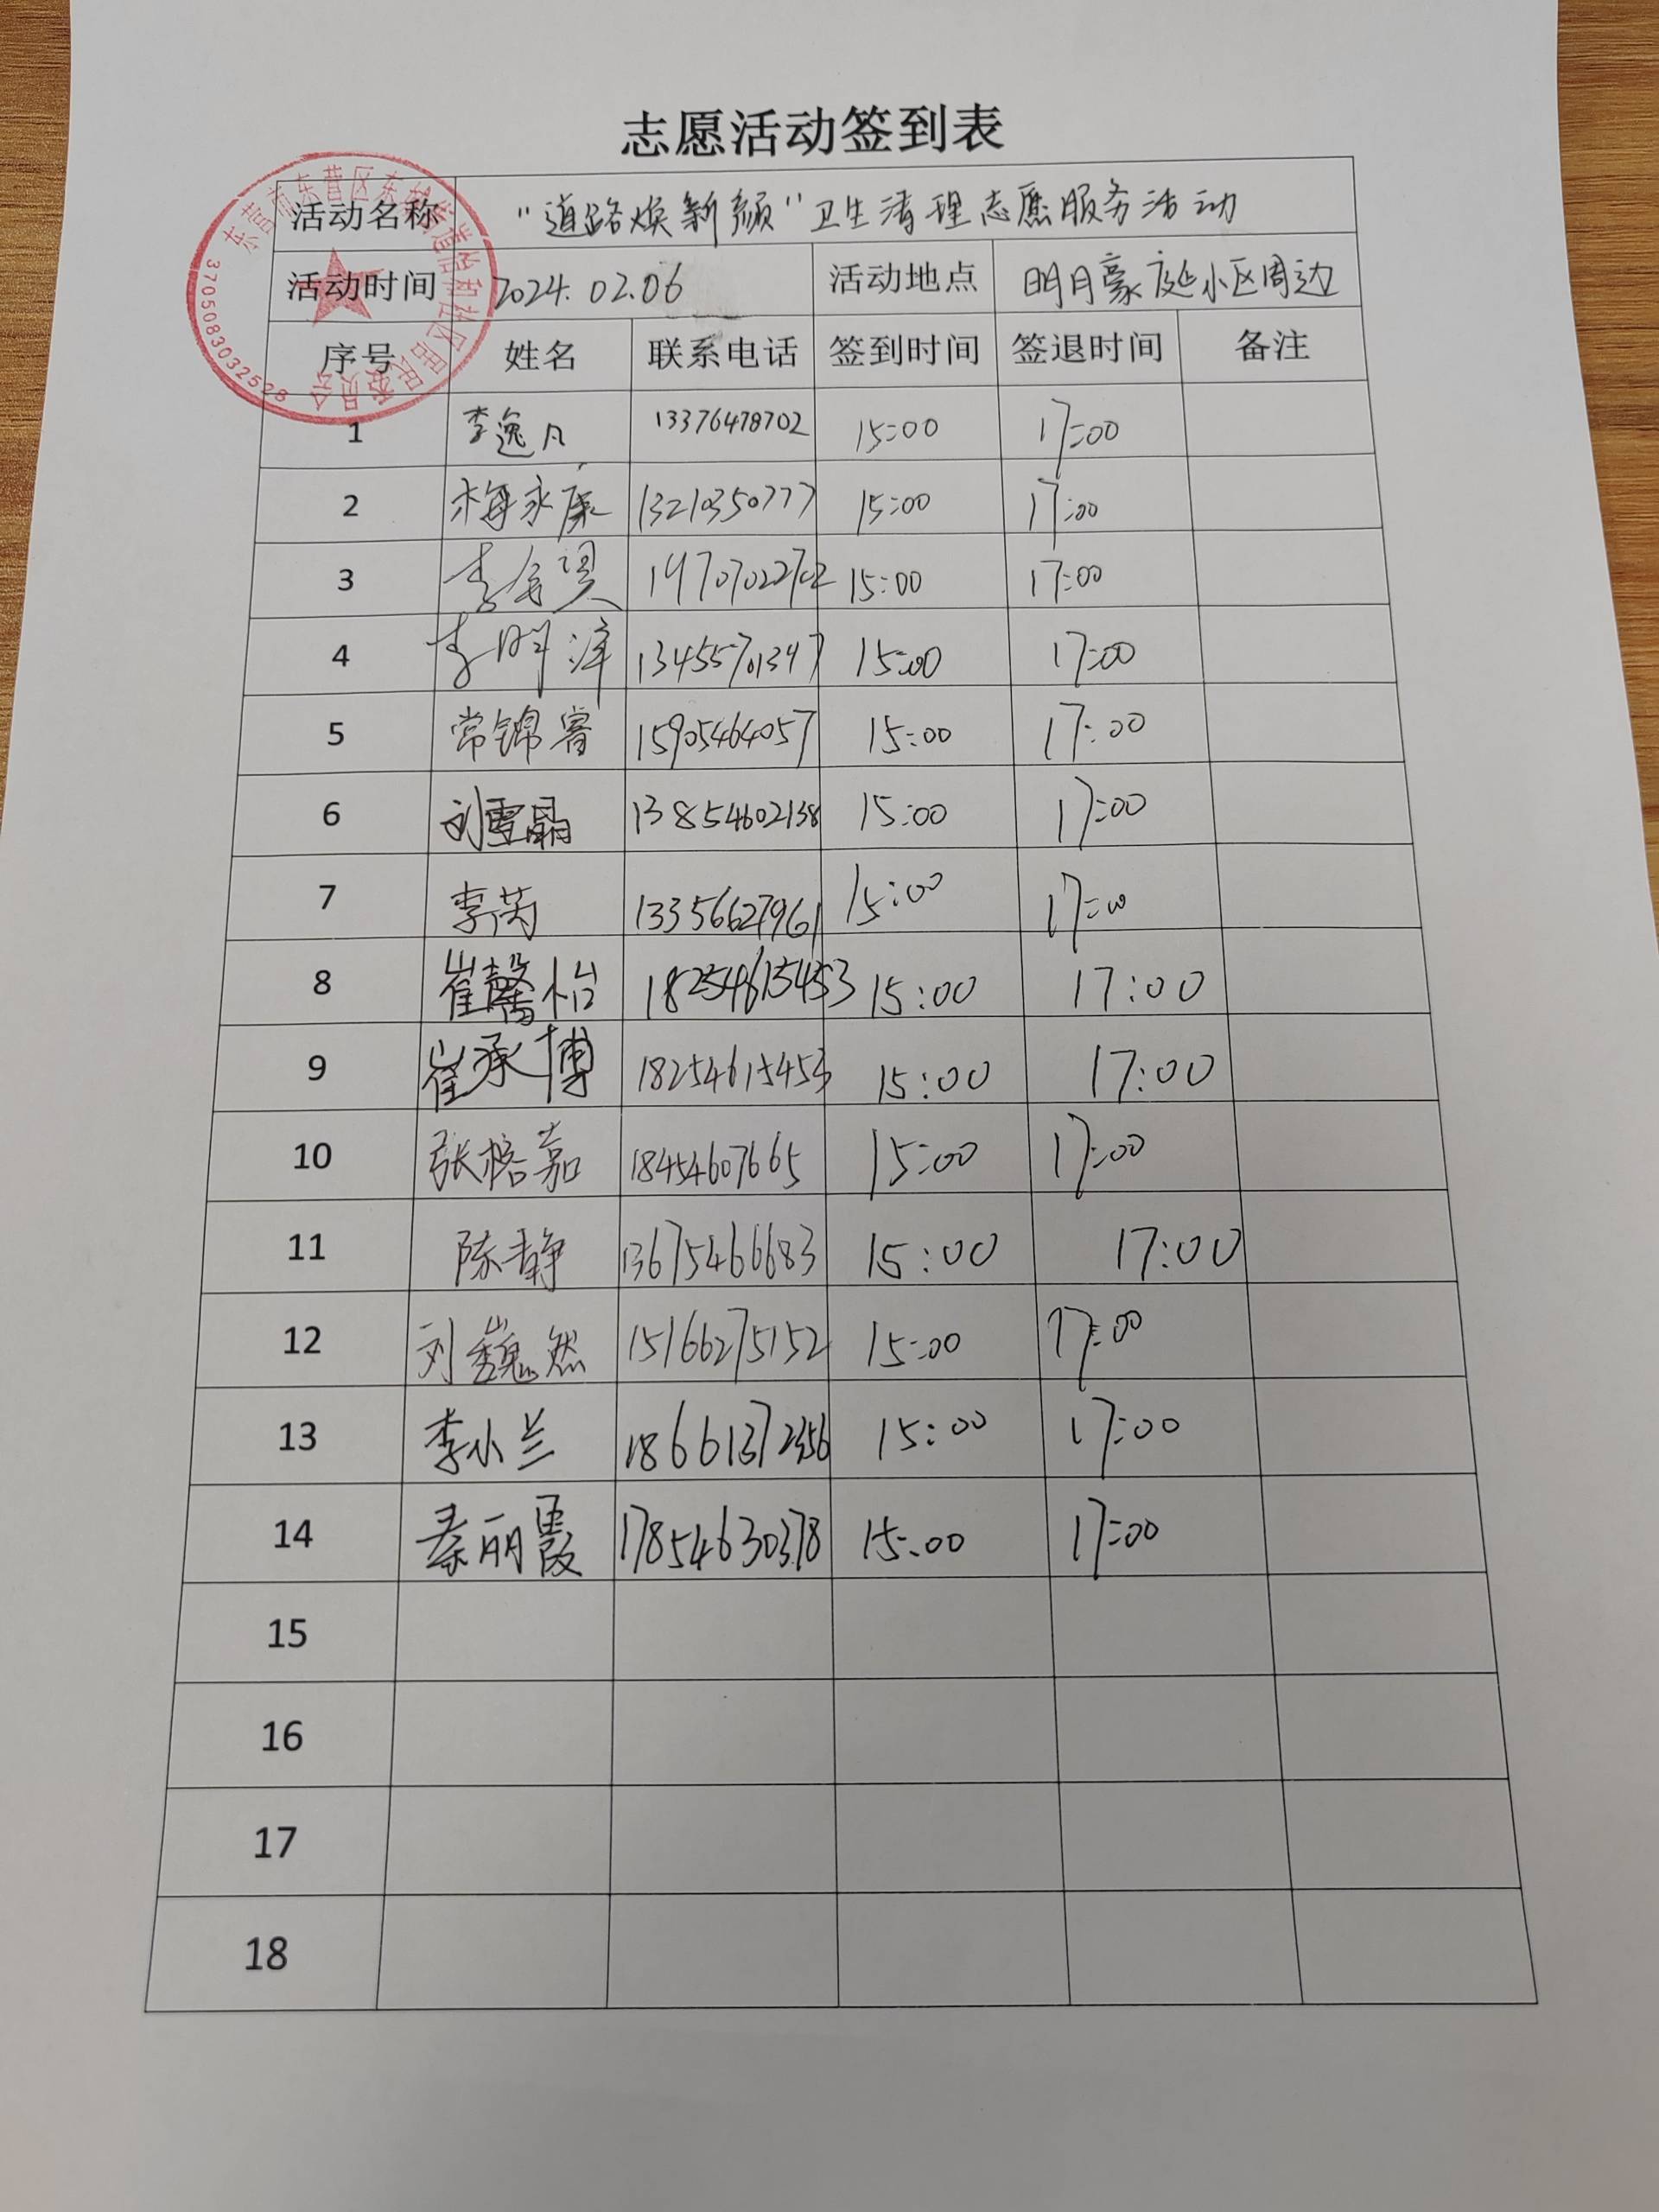 志愿活动签到表
活动名称 "道路焕新颜"卫生清理志愿服务活动
活动时间 2024.02.06 活动地点 明月豪庭小区周边
序号 姓名 联系电话 签到时间 签退时间 备注
1 李逸凡 13376478702 15:00 17:00
2 梅永康 13210350777 15:00 17:00
3 15:00 17:00
4 李明泽 13455701347 15:00 17:00
5 常锦睿 15905464057 15:00 17:00
6 刘雪晶 13854602138 15:00 17:00
7 李芮 13356627961 15:00 17:00
8 崔馨怡 15:00 17:00
9 崔承博 18254615453 15:00 17:00
10 张榕嘉 18454607665 15:00 17:00
11 陈静 13675466683 15:00 17:00
12 刘巍然 15166275152 15:00 17:00
13 李小兰 18661372356 15:00 17:00
14 秦丽霞 17854630378 15:00 17:00
15
16
17
18
东营市东营区东城街道怡和社区居民委员会
3705083032528